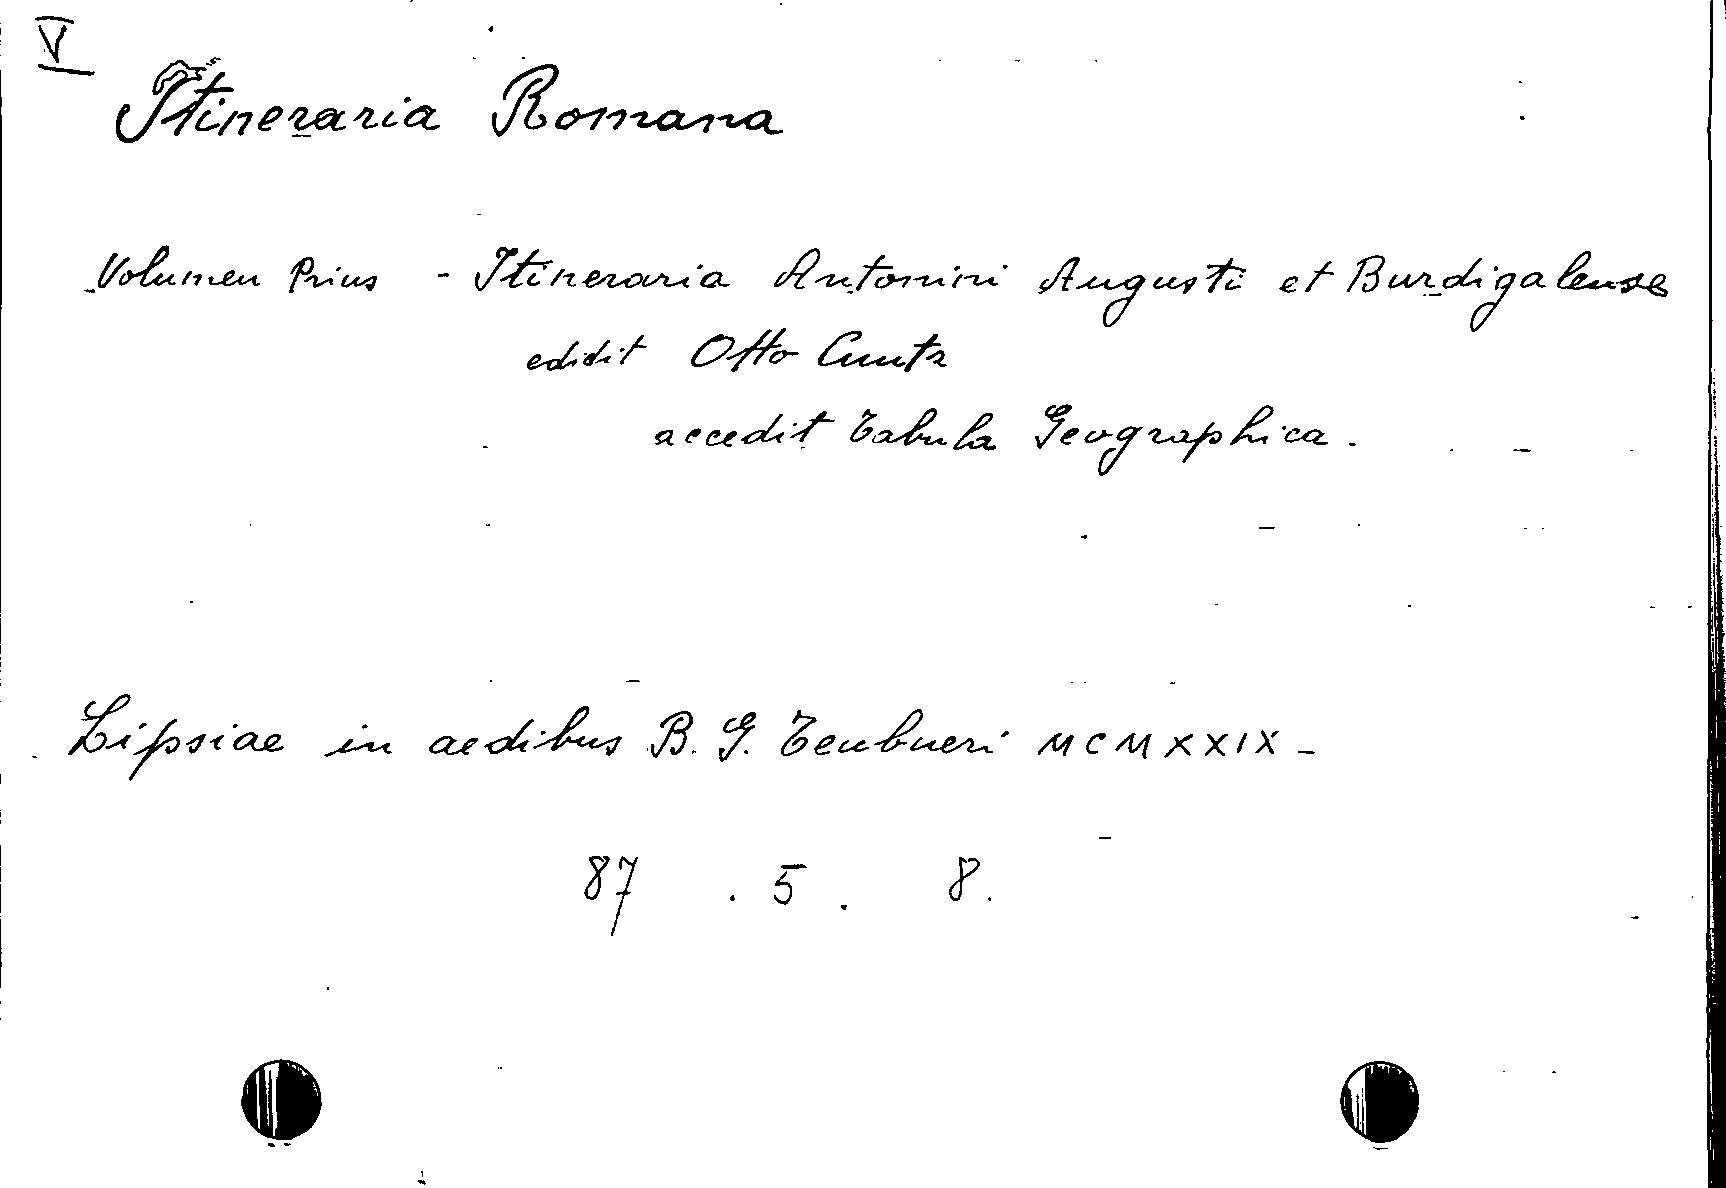 V
Itineraria Romana
Volumen Prius - Itineraria Antonini Augusti et Burdigalense
edidit Otto Cuntz
accedit Tabula Geographica.
Lipsiae in aedibus B. G. Teubneri MCMXXIX -
87 . 5 . 8.